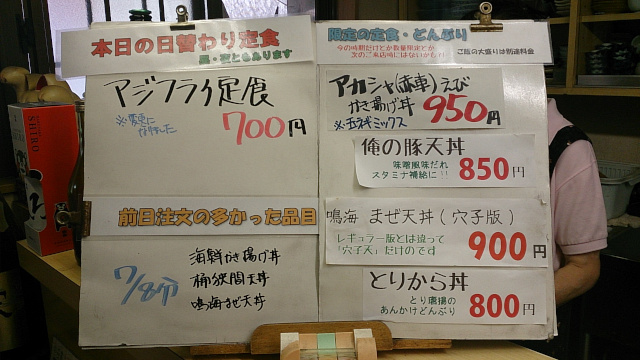 本日の日替わり定食
昼・夜ともあります
アジフライ定食
※変更になりました
700円
前日注文の多かった品目
7/8分
海鮮かき揚げ丼
桶狭間天丼
鳴海まぜ天丼
限定の定食・どんぶり
今の時期だけとか数量限定とか
次のご来店時にはないかも!!
ご飯の大盛りは別途料金
アカシャ(赤車)えび
かき揚げ丼 950円
※玉ネギミックス
俺の豚天丼
味噌風味だれ
スタミナ補給に!!
850円
鳴海 まぜ天丼(穴子版)
レギュラー版とは違って
「穴子天」だけのです
900円
とりから丼
とり唐揚の
あんかけどんぶり
800円
SHIRO